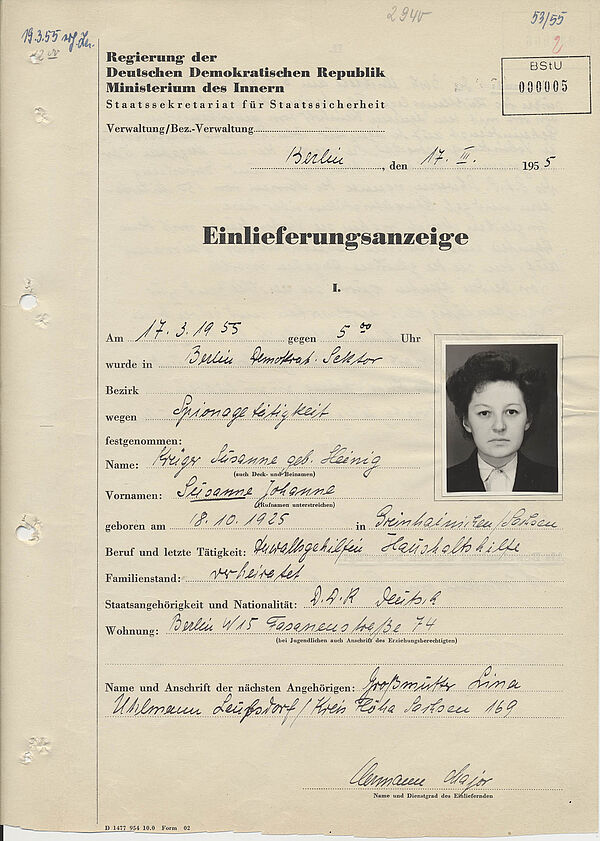 2940
53/55
19.3.55
2
BStU
000005
Regierung der
Deutschen Demokratischen Republik
Ministerium des Innern
Staatssekretariat für Staatssicherheit
Verwaltung/Bez.-Verwaltung
Berlin, den 17. III. 1955
Einlieferungsanzeige
I.
Am 17.3.1955 gegen 5 00 Uhr
wurde in Berlin Demokrat. Sektor
Bezirk
wegen Spionagetätigkeit
festgenommen:
Name: Krüger Susanne geb. Heinig
(auch Deck- und Beinamen)
Vornamen: Susanne Johanne
(Rufnamen unterstreichen)
geboren am 18.10.1925 in Greinhainichen/Sachsen
Beruf und letzte Tätigkeit: Anwaltsgehilfin Haushaltshilfe
Familienstand: verheiratet
Staatsangehörigkeit und Nationalität: D.D.R Deutsch
Wohnung: Berlin W15 Fasanenstraße 74
(bei Jugendlichen auch Anschrift des Erziehungsberechtigten)
Name und Anschrift der nächsten Angehörigen: Großmutter Lina
Uhlmann /Kreis Flöha Sachsen 169
Major
Name und Dienstgrad des Einliefernden
D 1477 954 10.0 Form 02